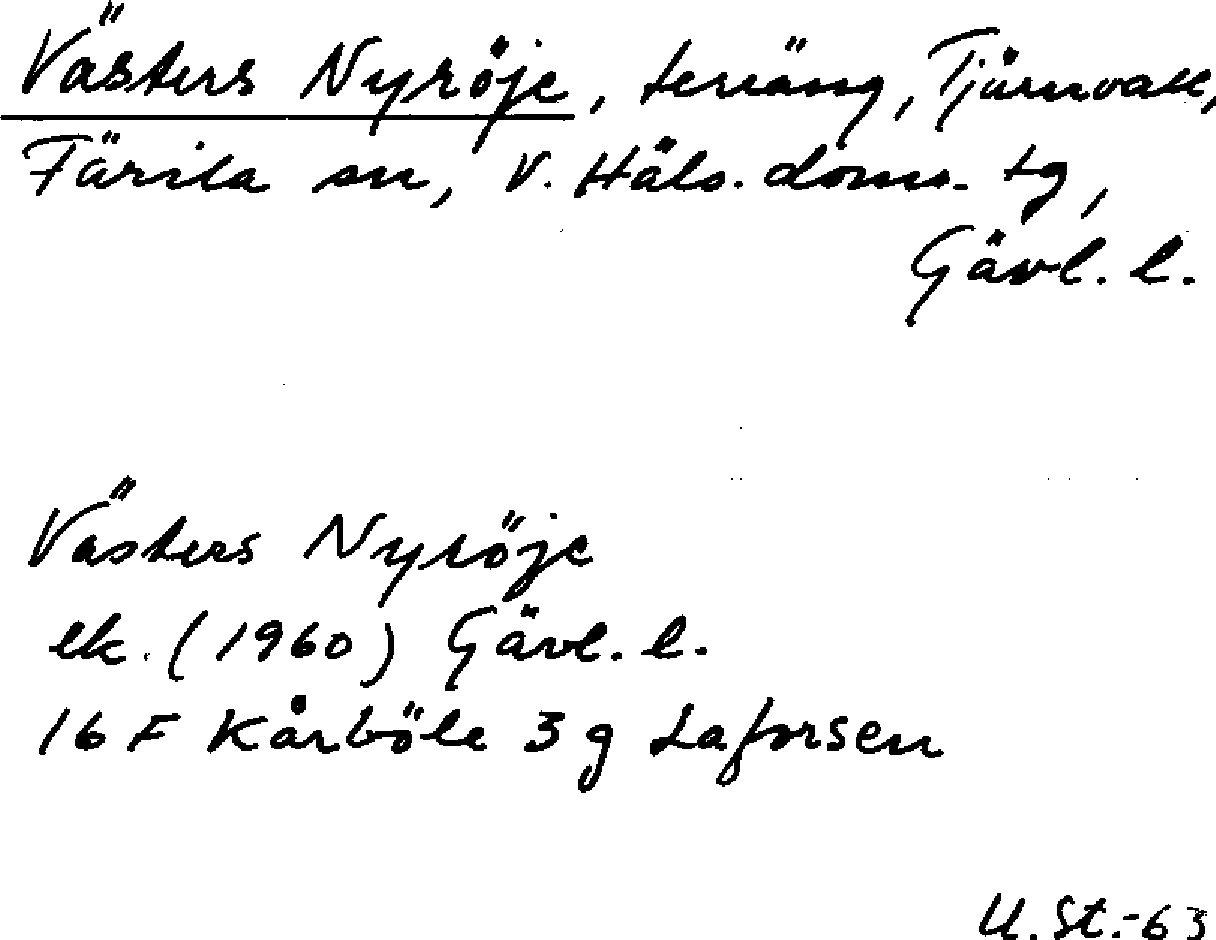 Västers Nyröje, terräng, Tjärnvall,
Färila sn, V. Häls. doms. tg,
Gävl. l.
Västers Nyröje
ek. (1960) Gävl. l.
16 F Kårböle 3 g Laforsen
U. St.-63